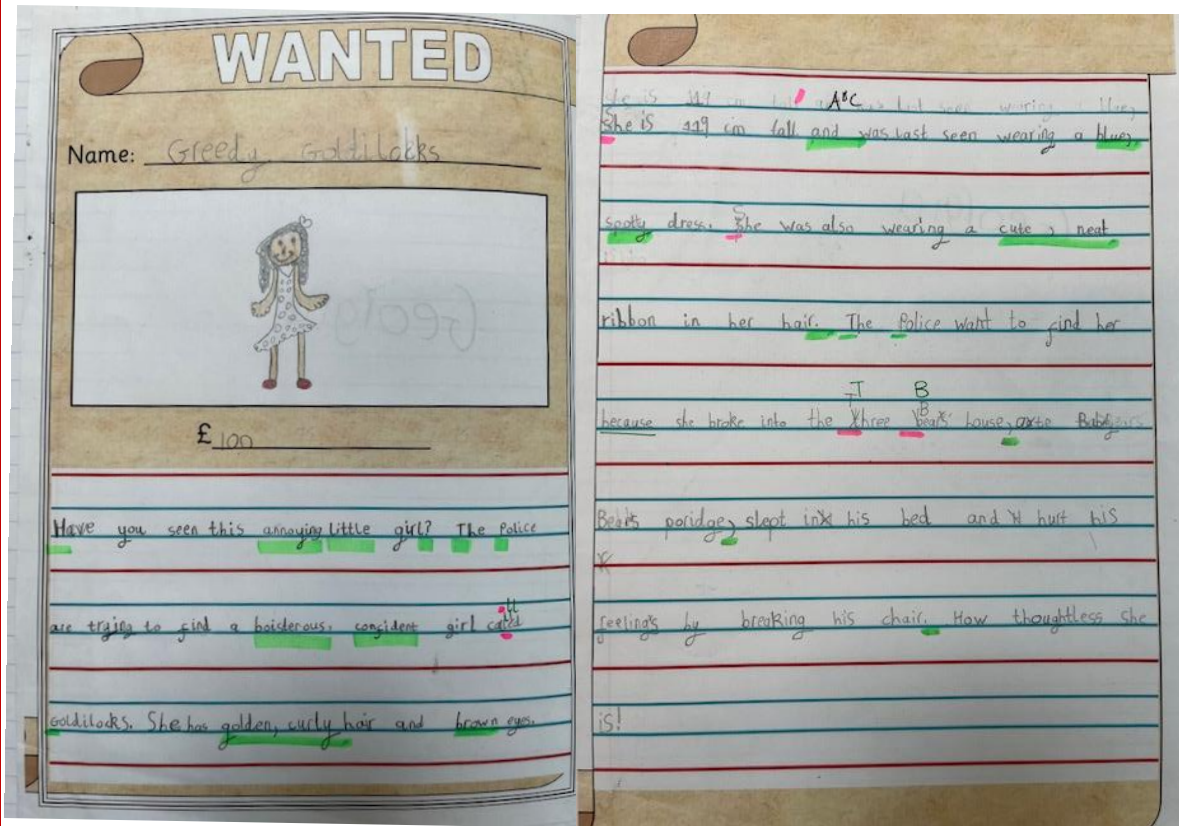 WANTED
Name: Greedy Goldilocks
£100
Have you seen this annoying little girl? The Police
are trying to find a boisterous, confident girl called
Goldilocks. She has golden, curly hair and brown eyes.
ABC
She is 119 cm tall and was last seen wearing a blue,
spotty dress. She was also wearing a cute, neat
ribbon in her hair. The Police want to find her
T B
because she broke into the Three Bears' house, ate Baby
Bears poridge, slept in his bed and hurt his
feelings by breaking his chair. How thoughtless she
is!